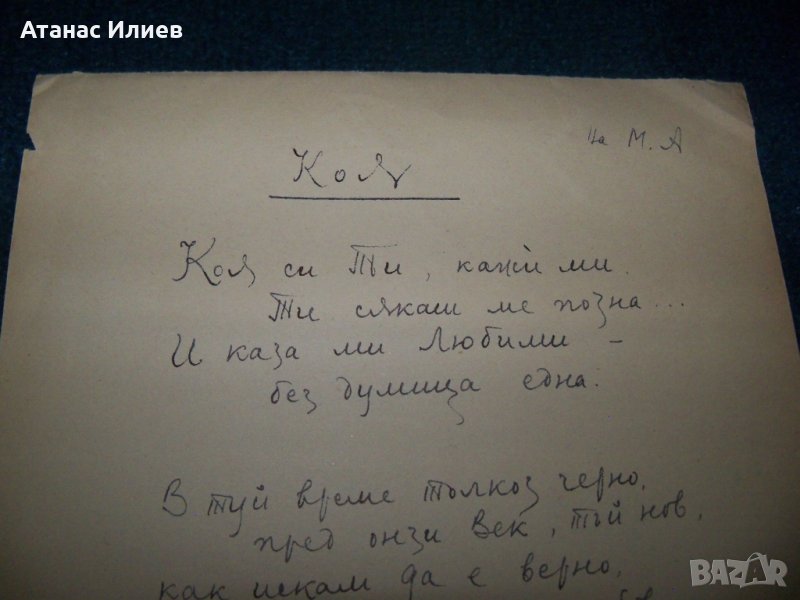 Атанас Илиев
на М. А
Коя
Коя си Ти, кажи ми.
Ти сякаш ме позна...
И каза ми Любими –
без думица една.
В туй време толкоз черно,
пред онзи Век, тъй нов,
как искам да е верно,
BAZAR